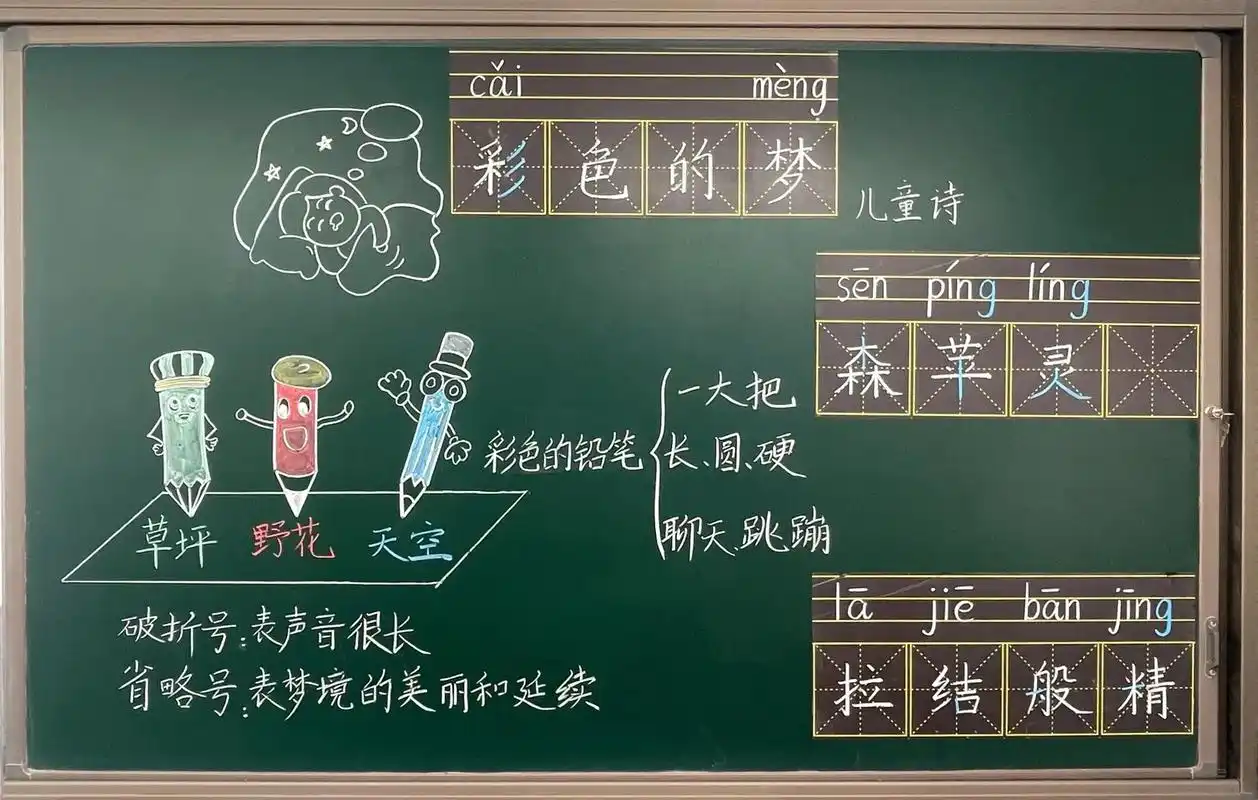 cǎi mèng
彩色的梦
儿童诗
sēn píng líng
森苹灵
一大把
彩色的铅笔 长、圆、硬
聊天、跳蹦
草坪 野花 天空
破折号:表声音很长
省略号:表梦境的美丽和延续
lā jiē bān jīng
拉结般精